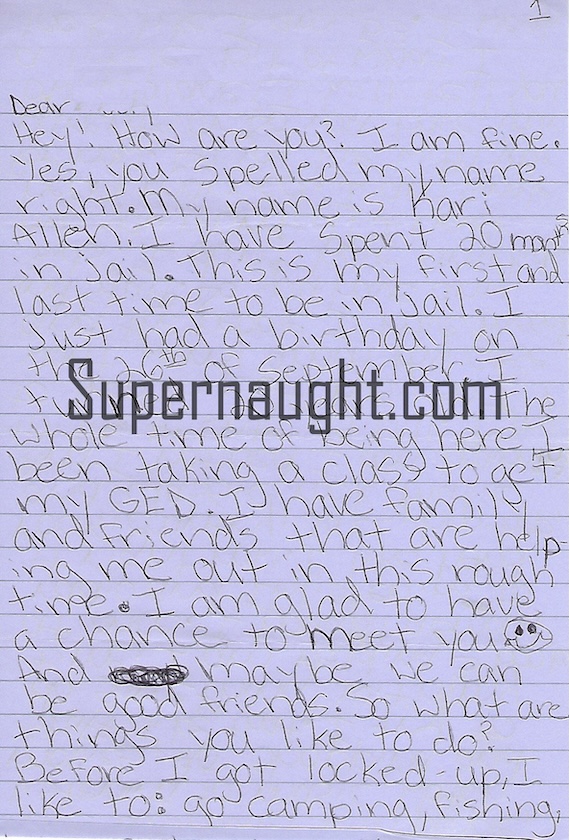 1
Dear
Hey! How are you? I am fine.
Yes, you spelled my name
right. My name is Kari
Allen. I have spent 20 months
in jail. This is my first and
last time to be in jail. I
just had a birthday on
the 26th of September. I
Supernaught.com
The
whole time of being here I
been taking a class to get
my GED. I have family
and friends that are help-
ing me out in this rough
time. I am glad to have
a chance to meet you
And maybe we can
be good friends. So what are
things you like to do?
Before I got locked-up, I
like to: go camping, fishing,